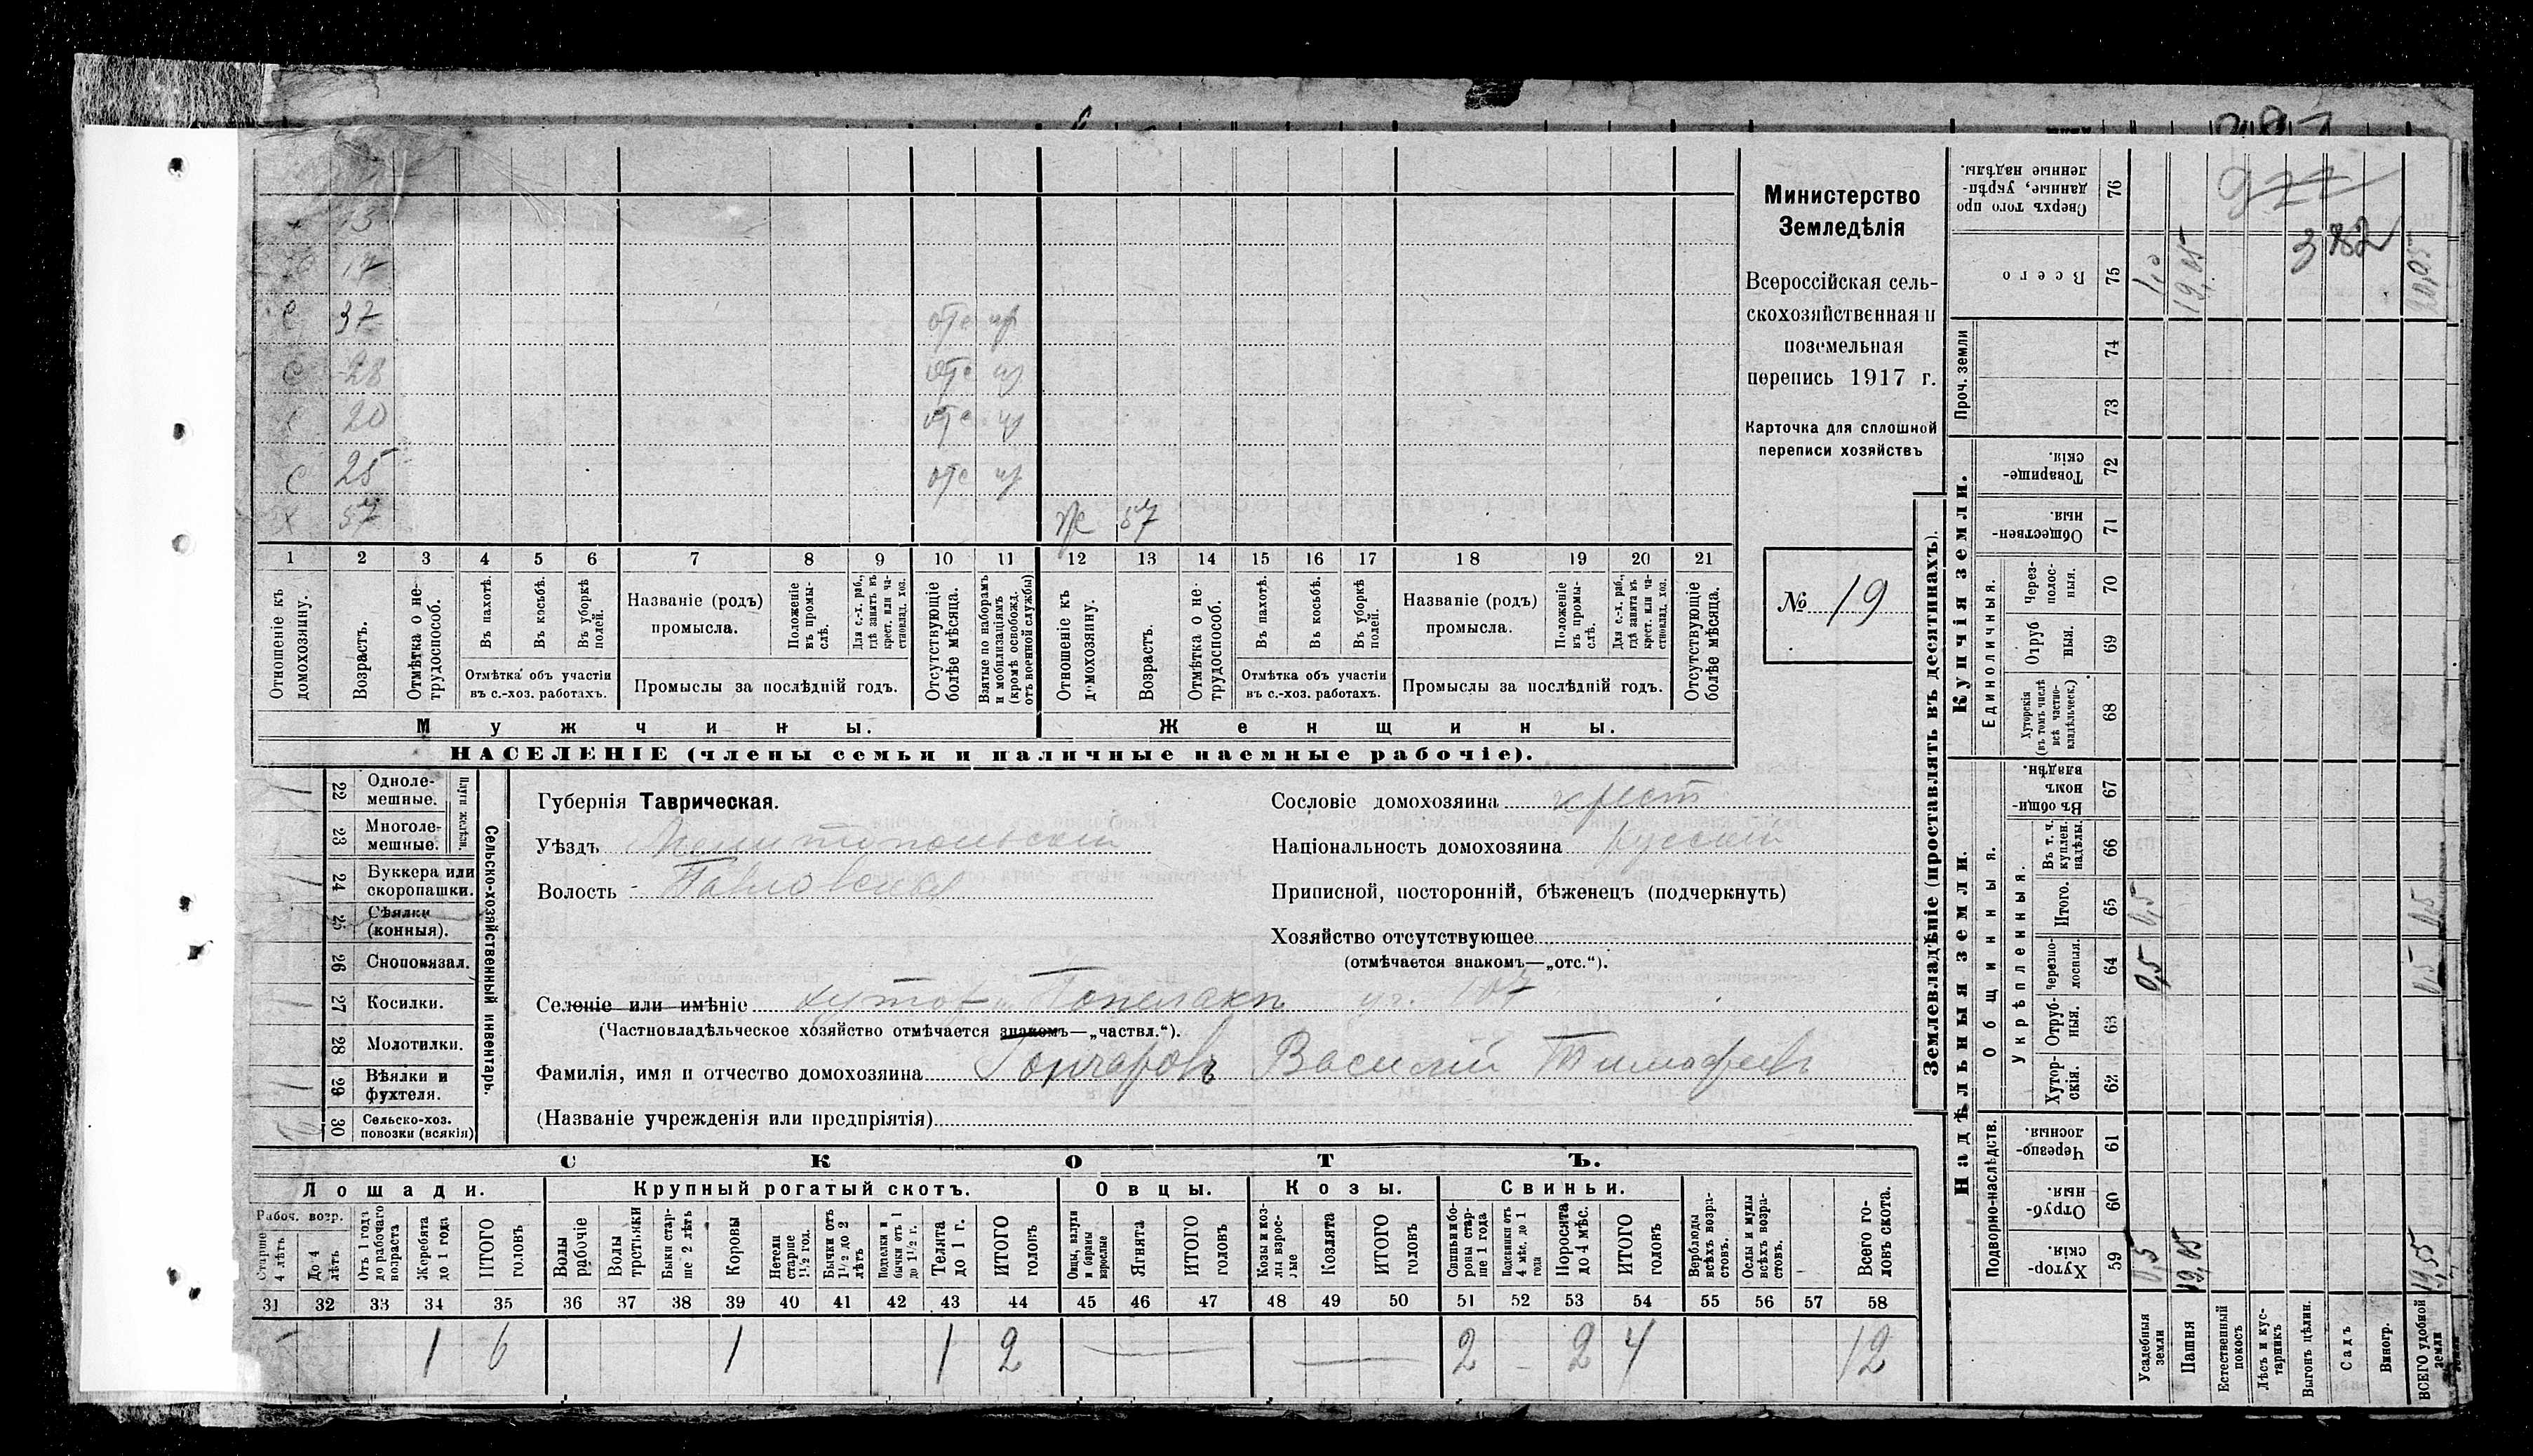 Министерство
Земледѣлія
Всероссійская сель-
скохозяйственная и
поземельная
перепись 1917 г.
Карточка для сплошной
переписи хозяйствъ
№ 19
13
17
С 37 отс
С 28 отс
20 отс
С 25 отс
Х 57 ж 57
1 2 3 4 5 6 7 8 9 10 11 12 13 14 15 16 17 18 19 20 21
Отношеніе къ домохозяину.
Возрастъ.
Отмѣтка о не-трудоспособ.
Въ пахотѣ.
Въ косьбѣ.
Въ уборкѣ полей.
Отмѣтка объ участіи
въ с.-хоз. работахъ.
Названіе (родъ)
промысла.
Положеніе въ промы-слѣ.
Для с.-х. раб., гдѣ занятъ въ крест. или ча-стновлад. хоз.
Промыслы за послѣдній годъ.
Отсутствующіе болѣе мѣсяца.
Взятые по наборамъ и мобилизаціямъ (кромѣ освобожд. отъ военной службы)
Отношеніе къ домохозяину.
Возрастъ.
Отмѣтка о не-трудоспособ.
Въ пахотѣ.
Въ косьбѣ.
Въ уборкѣ полей.
Отмѣтка объ участіи
въ с.-хоз. работахъ.
Названіе (родъ)
промысла.
Положеніе въ промы-слѣ.
Для с.-х. раб., гдѣ занята въ крест. или ча-стновлад. хоз.
Промыслы за послѣдній годъ.
Отсутствующіе болѣе мѣсяца.
Мужчины.
Женщины.
НАСЕЛЕНІЕ (члены семьи и наличные наемные рабочіе).
Сельско-хозяйственный инвентарь.
Плуги желѣзн.
22 Одноле-мешные.
23 Многоле-мешные.
24 Буккера или скоропашки.
25 Сѣялки (конныя).
26 Сноповязал.
27 Косилки.
28 Молотилки.
29 Вѣялки и фухтеля.
30 Сельско-хоз. повозки (всякія)
Губернія Таврическая.
Уѣздъ Мелитопольскій
Волость Павловская
Сословіе домохозяина крест
Національность домохозяина русскій
Приписной, посторонній, бѣженецъ (подчеркнуть)
Хозяйство отсутствующее
(отмѣчается знакомъ—„отс.“).
Селеніе или имѣніе хутор уч. 107
(Частновладѣльческое хозяйство отмѣчается знакомъ—„частвл.“).
Фамилія, имя и отчество домохозяина Гончаровъ Василій Тимофеевъ
(Названіе учрежденія или предпріятія)
СКОТЪ.
Лошади.
Крупный рогатый скотъ.
Овцы.
Козы.
Свиньи.
Рабоч. возр.
Старше 4 лѣтъ
До 4 лѣтъ
Отъ 1 года до рабочаго возраста
Жеребята до 1 года
ИТОГО головъ
Волы рабочіе
Волы третьяки
Быки стар-ше 2 лѣтъ
Коровы
Нетели старше 1½ год.
Бычки отъ 1½ до 2 лѣтъ
Подтелки и бычки отъ 1 до 1½ г.
Телята до 1 г.
ИТОГО головъ
Овцы, валухи и бараны взрослые
Ягнята
ИТОГО головъ
Козы и коз-лы взрос-лые
Козлята
ИТОГО головъ
Свиньи и бо-ровы стар-ше 1 года
Подсвинки отъ 4 мѣс. до 1 года
Поросята до 4 мѣс.
ИТОГО головъ
Верблюды всѣхъ возра-стовъ.
Ослы и мулы всѣхъ возра-стовъ.
Всего го-ловъ скота.
31 32 33 34 35 36 37 38 39 40 41 42 43 44 45 46 47 48 49 50 51 52 53 54 55 56 57 58
1 6 1 1 2 2 2 4 12
Землевладѣніе (проставлять въ десятинахъ).
Надѣльныя земли.
Купчія земли.
Проч. земли
Подворно-наслѣдств.
Общинныя.
Укрѣпленныя.
Единоличныя.
Сверхъ того про-данные, укрѣп-ленные надѣлы. 76
Всего 75 1,0 19,05 20,05
74
73
Товарище-скія. 72
Обществен-ныя. 71
Через-полос-ныя. 70
Отруб-ныя. 69
Хуторскія (въ томъ числѣ всѣ частно-владѣльческ.) 68
Въ общин-номъ владѣн. 67
Въ т. ч. куплен. надѣлы. 66
Итого. 65 0,5 0,5
Черезпо-лосныя. 64 0,5 0,5
Отруб-ныя. 63
Хутор-скія. 62
Черезпо-лосныя. 61
Отруб-ныя. 60
Хутор-скія. 59 0,5 19,05 19,55
Усадебныя земли
Пашня
Естественный покосъ
Лѣсъ и кус-тарникъ
Выгонъ цѣлин.
Садъ
Виногр.
ВСЕГО удобной земли
977
382